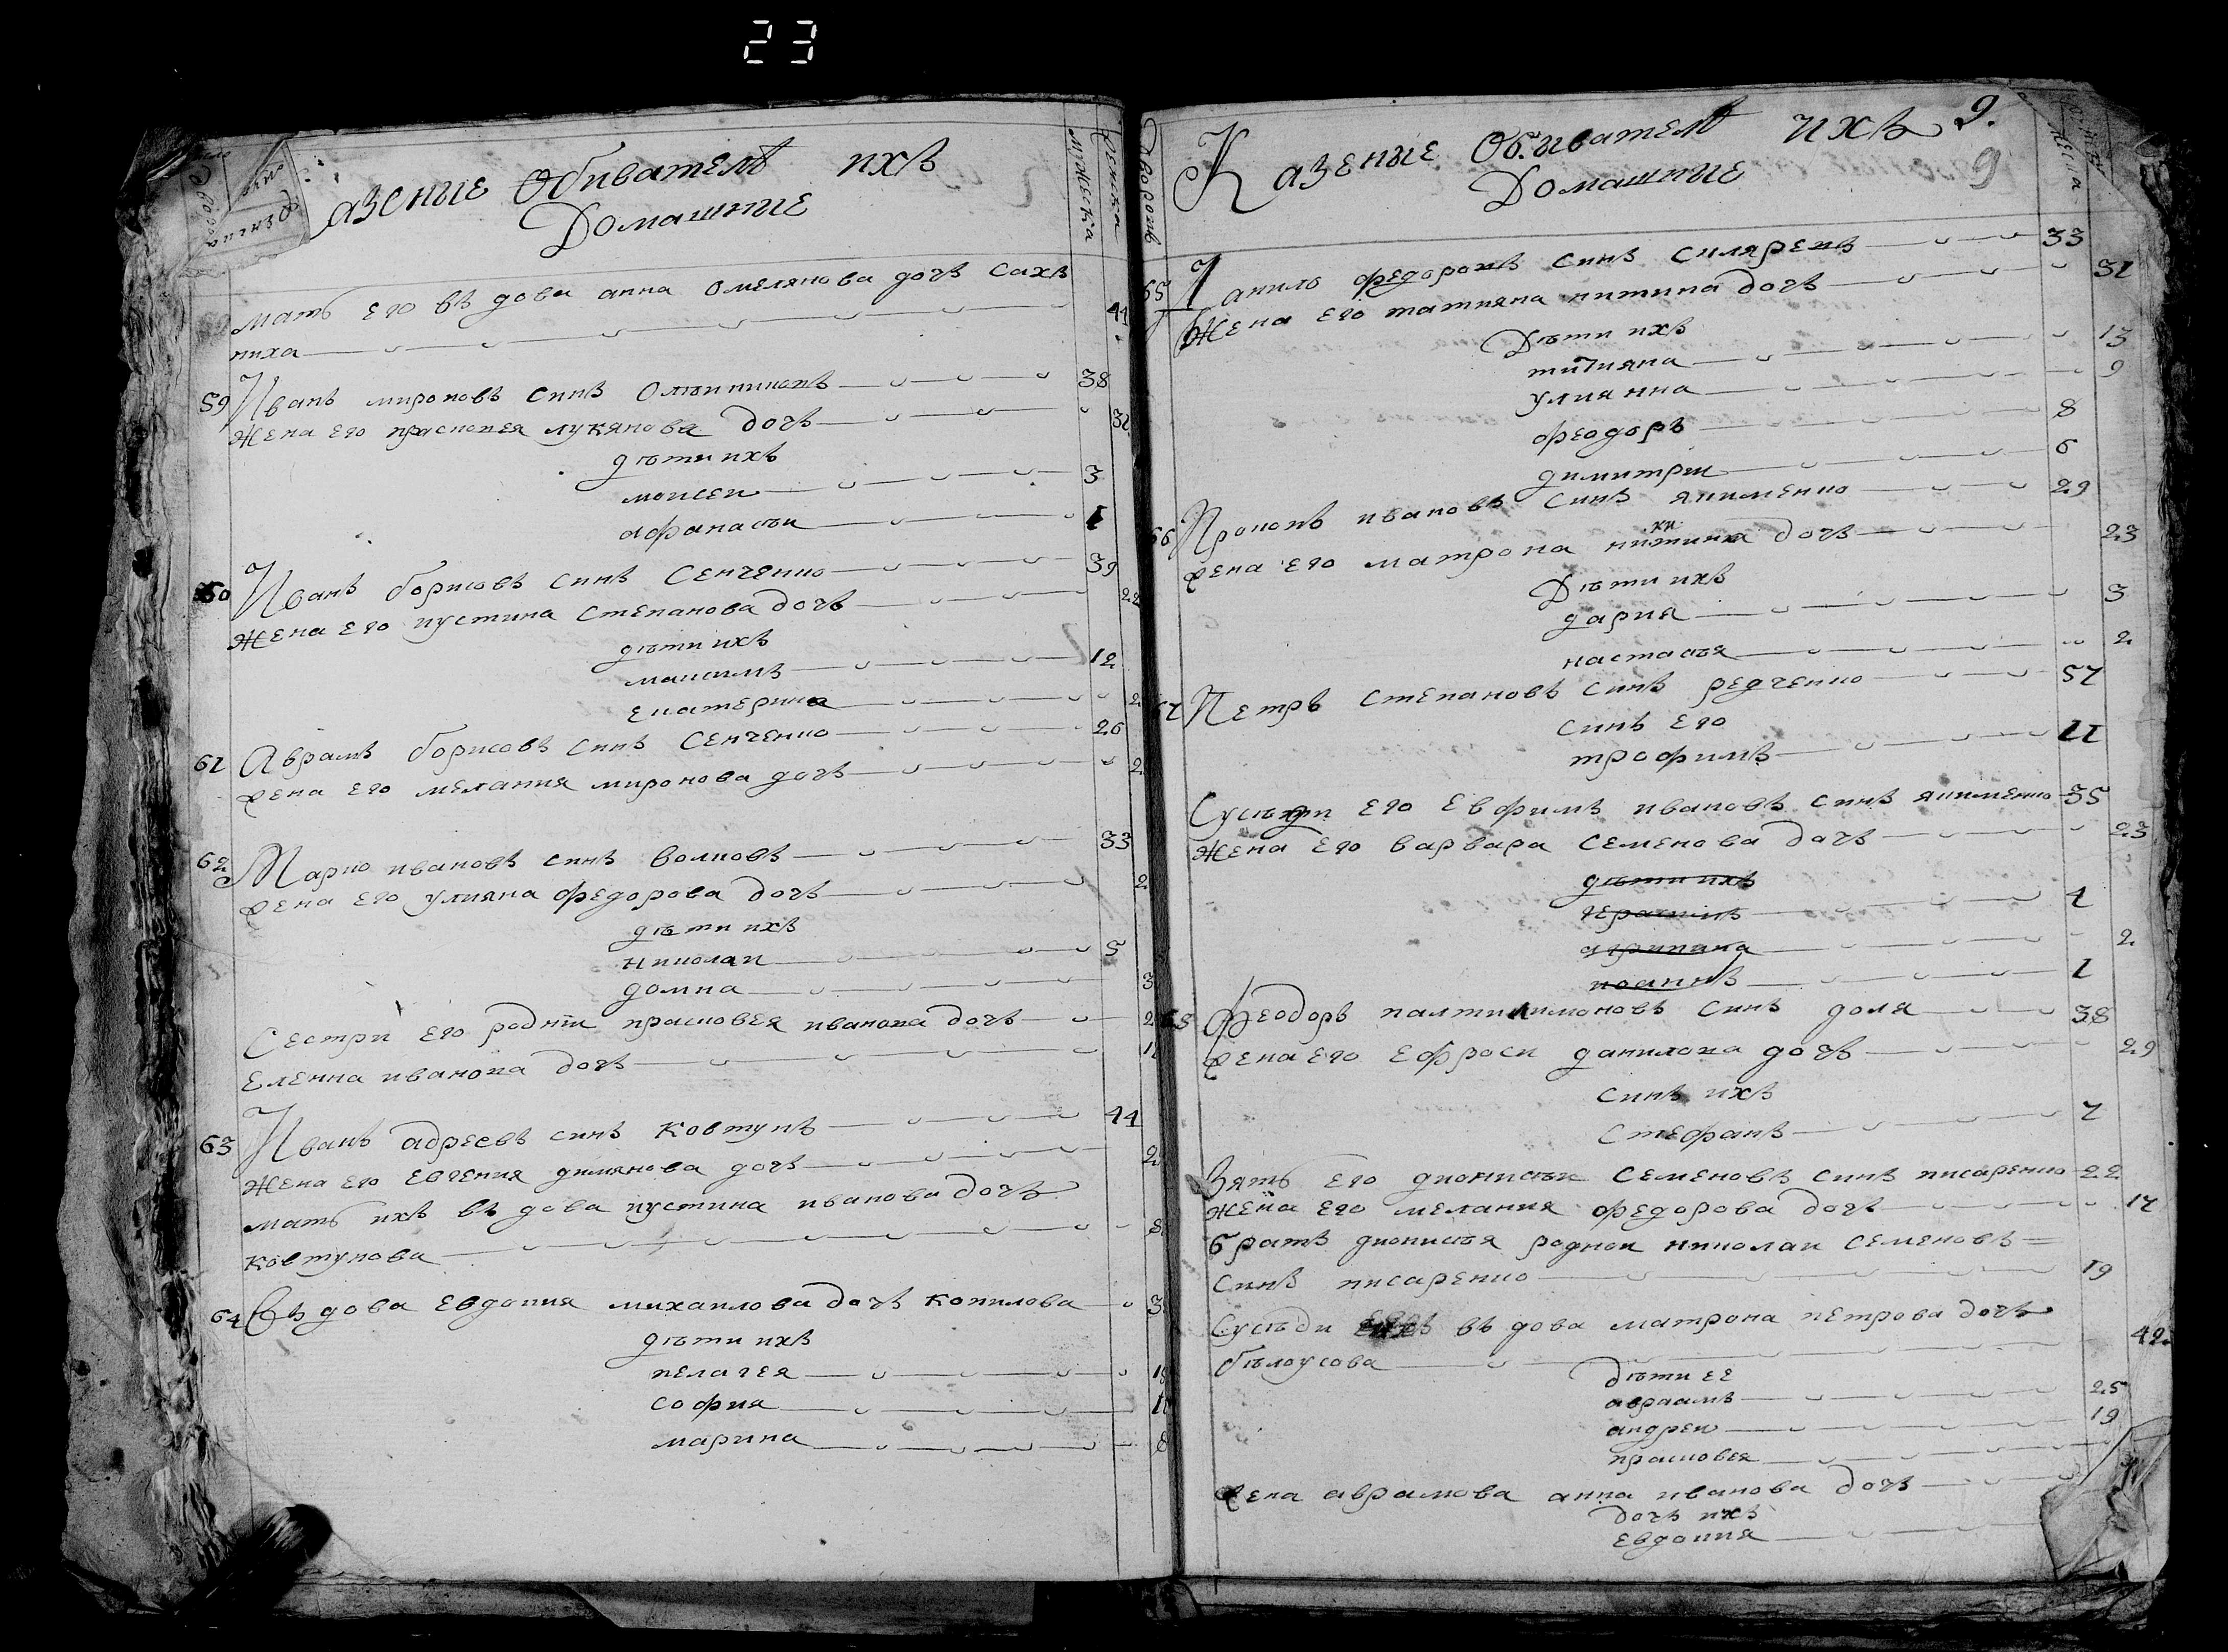 23
дворовъ
мужеска
женска
азение Обивателѣ ихъ
Домашние
мужеска
женска
Мать его въдова анна омелянова дочъ сахъ
ниха 41
59 Иванъ мироновъ синъ 38
Жена его прасковея лукянова дочъ 32
дѣти ихъ
моисеи 3
афанасѣи 1
60 Иванъ борисовъ синъ Сенченко 39
Жена его иустина степанова дочъ 22
дѣти ихъ
максимъ 12
екатерина 2
61 Аврамъ борисовъ синъ Сенченко 26
Жена его мелания миронова дочъ 2
62 Марко ивановъ синъ волковъ 33
Жена его улияна федорова дочъ 2
дѣти ихъ
николаи 5
домна 3
Сестри его роднѣи прасковея иванова дочъ 2
Еленна иванова дочъ 1
63 Иванъ адреевъ синъ Ковтунъ 44
Жена его Евгения димянова дочъ 2
мать ихъ въдова иустина иванова дочъ
ковтунова
64 Въдова Евдокия михаилова дочъ копилова 3
дѣти ихъ
пелагея 1
софия 1
марина 8
дворовъ
Казение Обивателѣ ихъ 9.
Домашние 9
65 Данило федоровъ синъ силяренъ 33
Жена его татияна никитина дочъ 31
Дѣти ихъ
татияна 13
улианна 9
феодоръ 8
димитри 6
66 Прокопъ ивановъ синъ якименко 29
Жена его матрона никитина дочъ 23
Дѣти ихъ
дария 3
настасѣя 2
67 Петръ степановъ синъ редченко 57
синъ его
трофимъ 11
Сусѣди его Евфимъ ивановъ синъ якименко 35
Жена его варвара семенова дочъ 23
дѣти ихъ
герасимъ 4
агрипина 2
иоаннъ 1
68 Феодоръ палтилимоновъ синъ доля 38
Жена его Ефроси данилова дочъ 29
синъ ихъ
стефанъ 7
Зять его дионисѣи семеновъ синъ писаренко 22
Жена его мелания федорова дочъ 17
братъ дионисѣя роднои николаи семеновъ
синъ писаренко 19
Сусѣди въдова матрона петрова дочъ
бѣлоусова 42
Дѣти ее
авраамъ 25
андреи 19
прасковея
Жена аврамова анна иванова дочъ
дочъ ихъ
евдокия